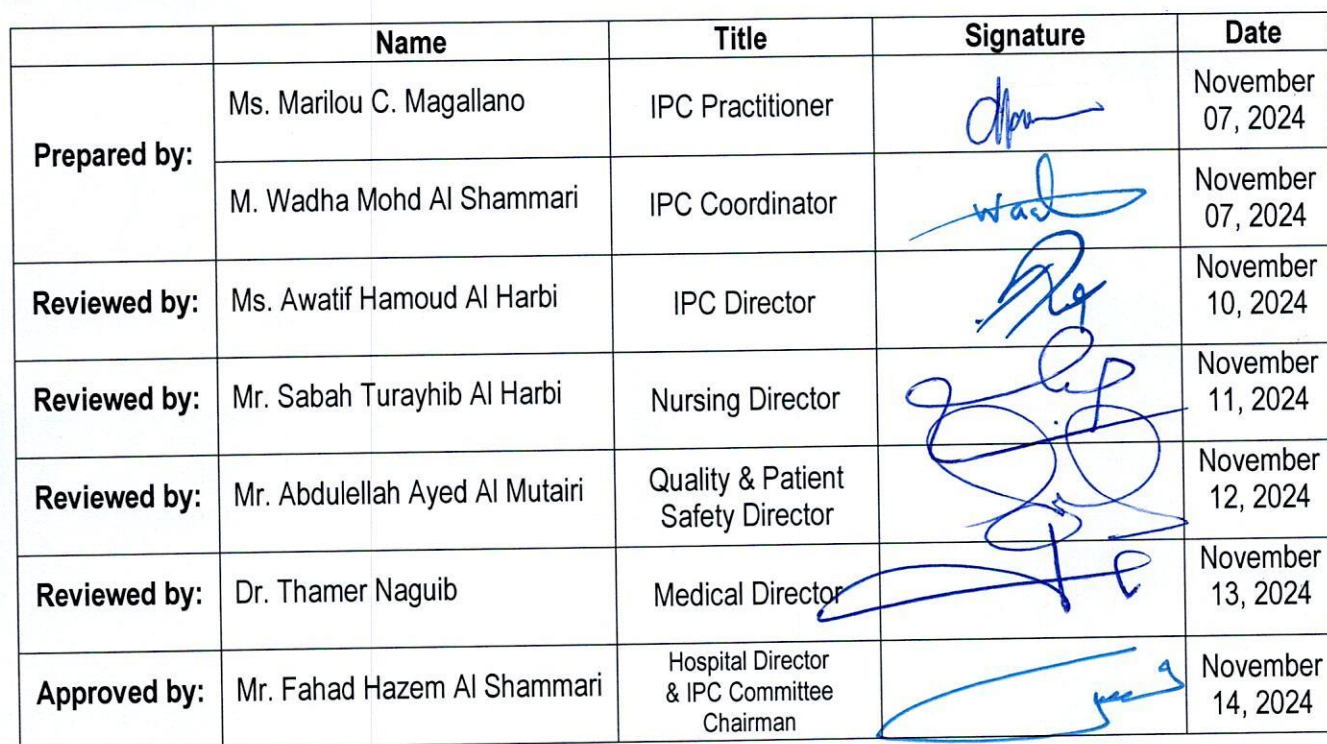 Name Title Signature Date
Prepared by:
Ms. Marilou C. Magallano IPC Practitioner November
07, 2024
M. Wadha Mohd Al Shammari IPC Coordinator November
07, 2024
Reviewed by: Ms. Awatif Hamoud Al Harbi IPC Director November
10, 2024
Reviewed by: Mr. Sabah Turayhib Al Harbi Nursing Director November
11, 2024
Reviewed by: Mr. Abdulellah Ayed Al Mutairi Quality & Patient
Safety Director November
12, 2024
Reviewed by: Dr. Thamer Naguib Medical Director November
13, 2024
Approved by: Mr. Fahad Hazem Al Shammari Hospital Director
& IPC Committee
Chairman November
14, 2024